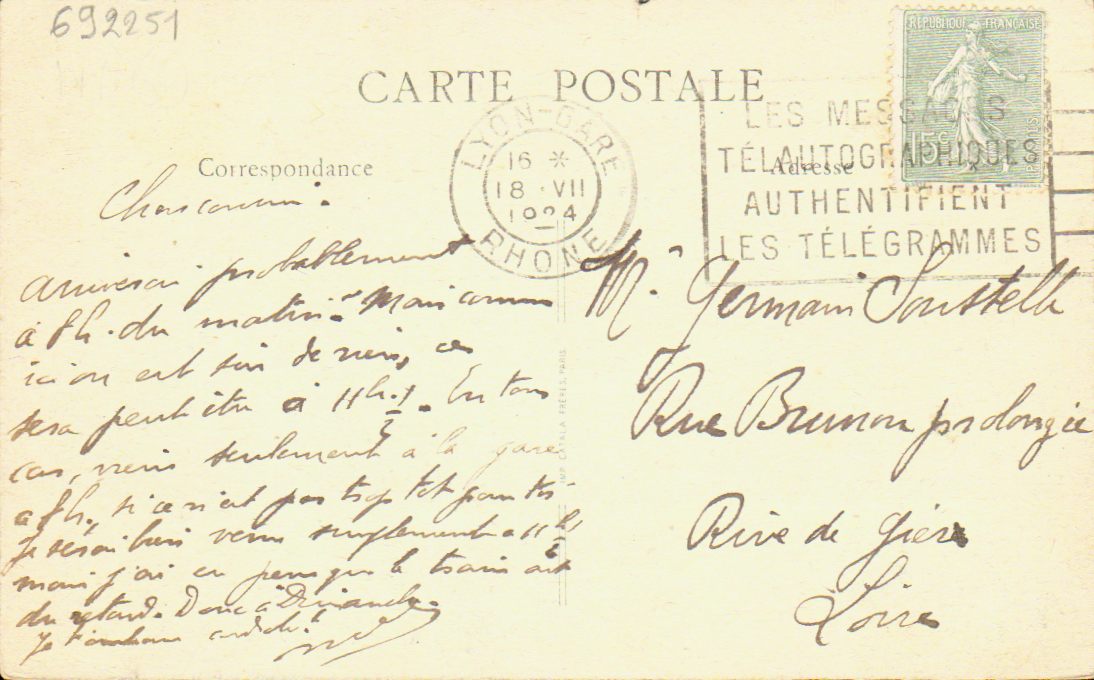 692251
CARTE POSTALE
Correspondance
Adresse
RÉPUBLIQUE FRANÇAISE
15c
POSTES
LYON-GARE
16 *
18 · VII
1924
RHONE
LES MESSAGES
TÉLAUTOGRAPHIQUES
AUTHENTIFIENT
LES TÉLÉGRAMMES
Cher cousin.
arriverai probablement
à 8h. du matin. Mais comme
ici on est sûr de rien, ce
sera peut être à 11h. 1/2. En tous
cas, viens seulement à la gare
à 8h. si ce n'est pas trop tôt pour toi.
Je serai bien venu simplement à 11h 1/2
mais j'ai eu peur que le train ait
du retard. Donc à Dimanche.
Je t'embrasse
IMP. CATALA FRÈRES, PARIS
Mr. Germain Soustelle
Rue Brunon prolongée
Rive de Gier
Loire